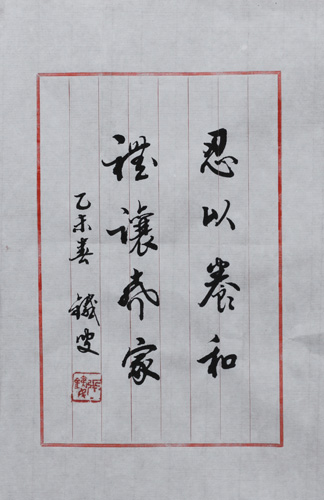 忍以養和
禮讓家
乙未春 鐵叟